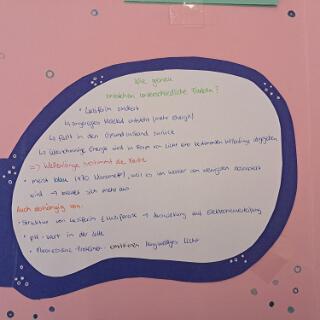 Wie genau
entstehen unterschiedliche Farben?
• Luciferin oxidiert
↳ angeregtes Molekül entsteht (mehr Energie)
↳ fällt in den Grundzustand zurück
↳ überschüssige Energie wird in Form von Licht einer bestimmten Wellenlänge abgegeben
=> Wellenlänge bestimmt die Farbe
• meist blau (470 Nanometer), weil es im Wasser am wenigsten absorbiert
wird → breitet sich mehr aus
Auch abhängig von:
• Struktur von Luciferin & Luciferase → Auswirkung auf Elektronenverteilung
• pH-Wert in der Zelle
• Fluoreszenz-Proteinen: emittieren langwelliges Licht